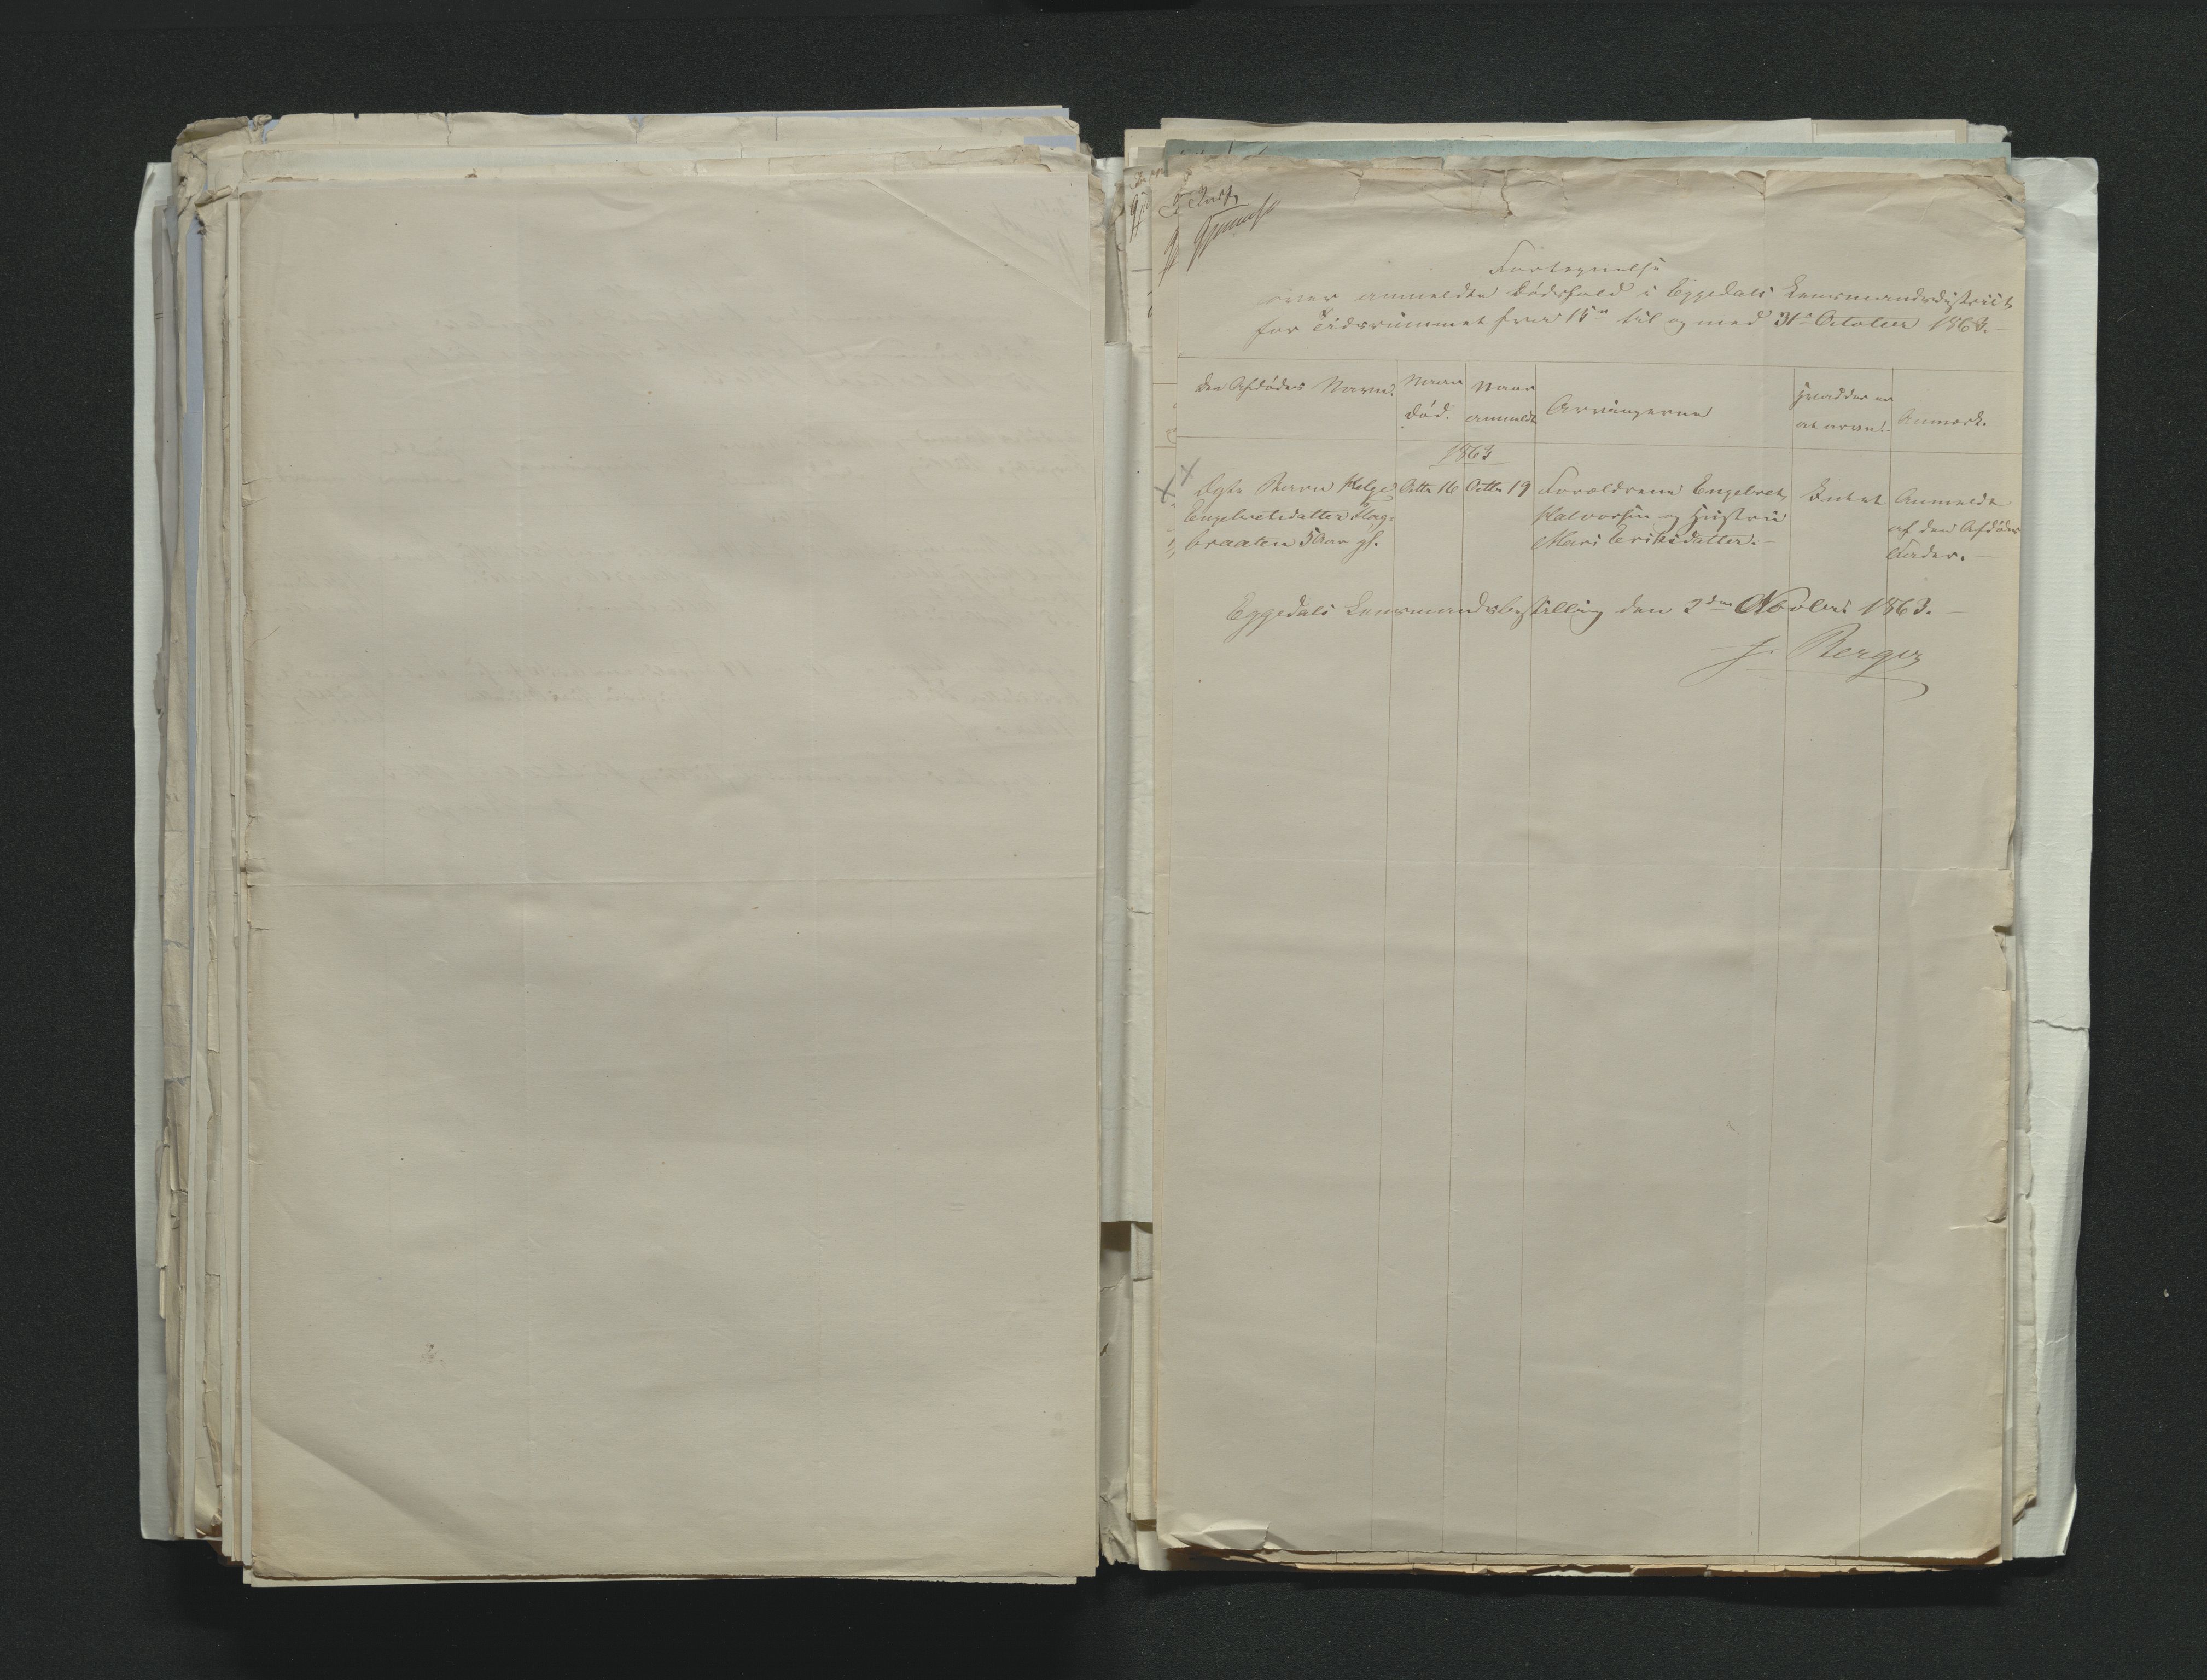 Fortegnelse
over anmeldte Dødsfald i Eggedals Lensmandsdistrict
for Tidsrummet fra 15de til og med 31te October 1863.
Den Afdødes Navn.
Naar død.
Naar anmeldt
Arvingerne
Hvad der er at arve.
Anmærk.
1863
Ægte Barn Helge
Engebretsdatter Hag-
braaten 5 Aar gl.
Octbr 16
Octbr 19
Forældrene Engebret
Halvorsen og Hustru
Mari Eriksdatter.
Intet
Anmeldt
af den Afdødes
Fader.
Eggedals Lensmandsbestilling den 2den Novbr 1863.
J. Berger